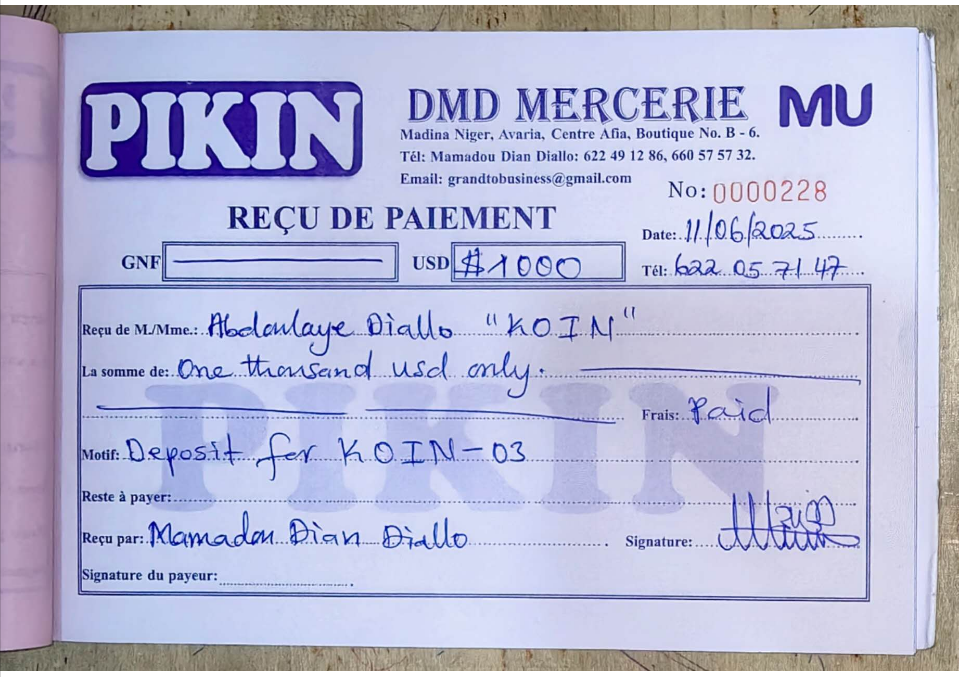 PIKIN
DMD MERCERIE
MU
Madina Niger, Avaria, Centre Afia, Boutique No. B - 6.
Tél: Mamadou Dian Diallo: 622 49 12 86, 660 57 57 32.
Email: grandtobusiness@gmail.com
No: 0000228
REÇU DE PAIEMENT
Date: 11/06/2025
GNF USD $1000
Tél: 622 05 71 47
Reçu de M./Mme.: Abdoulaye Diallo "KOIN"
La somme de: One thousand usd only.
Frais: Paid
Motif: Deposit for KOIN-03
PIKIN
Reste à payer:
Reçu par: Mamadou Dian Diallo Signature:
Signature du payeur: